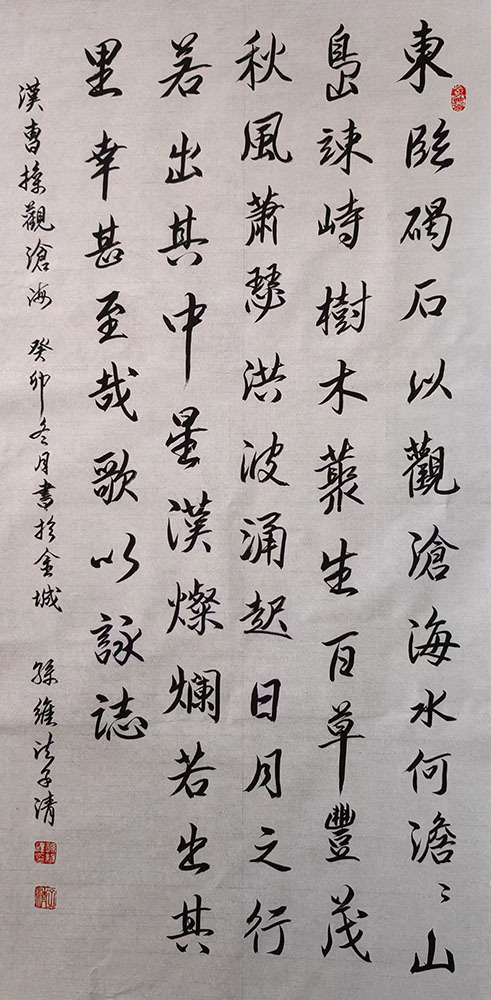 東臨碣石以觀滄海水何澹〻山
島竦峙樹木叢生百草豐茂
秋風蕭瑟洪波涌起日月之行
若出其中星漢燦爛若出其
里幸甚至哉歌以詠誌
漢曹操觀滄海 癸卯冬月書於金城 孫維 子清